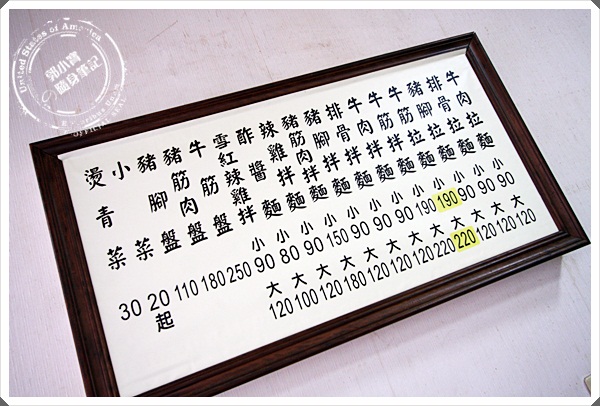 牛肉拉麵 小90 大120
排骨拉麵 小90 大120
豬腳拉麵 小90 大120
牛筋拉麵 小190 大220
牛筋拌麵 小190 大220
牛肉拌麵 小90 大120
排骨拌麵 小90 大120
豬腳拌麵 小90 大120
豬筋肉拌麵 小150 大180
辣雞拌麵 小90 大120
酢醬麵 小80 大100
雪紅辣雞拌麵 小90 大120
牛筋盤 250
豬筋肉盤 180
豬腳盤 110
小菜 20起
燙青菜 30
United States of America
郭小寶
隨身筆記